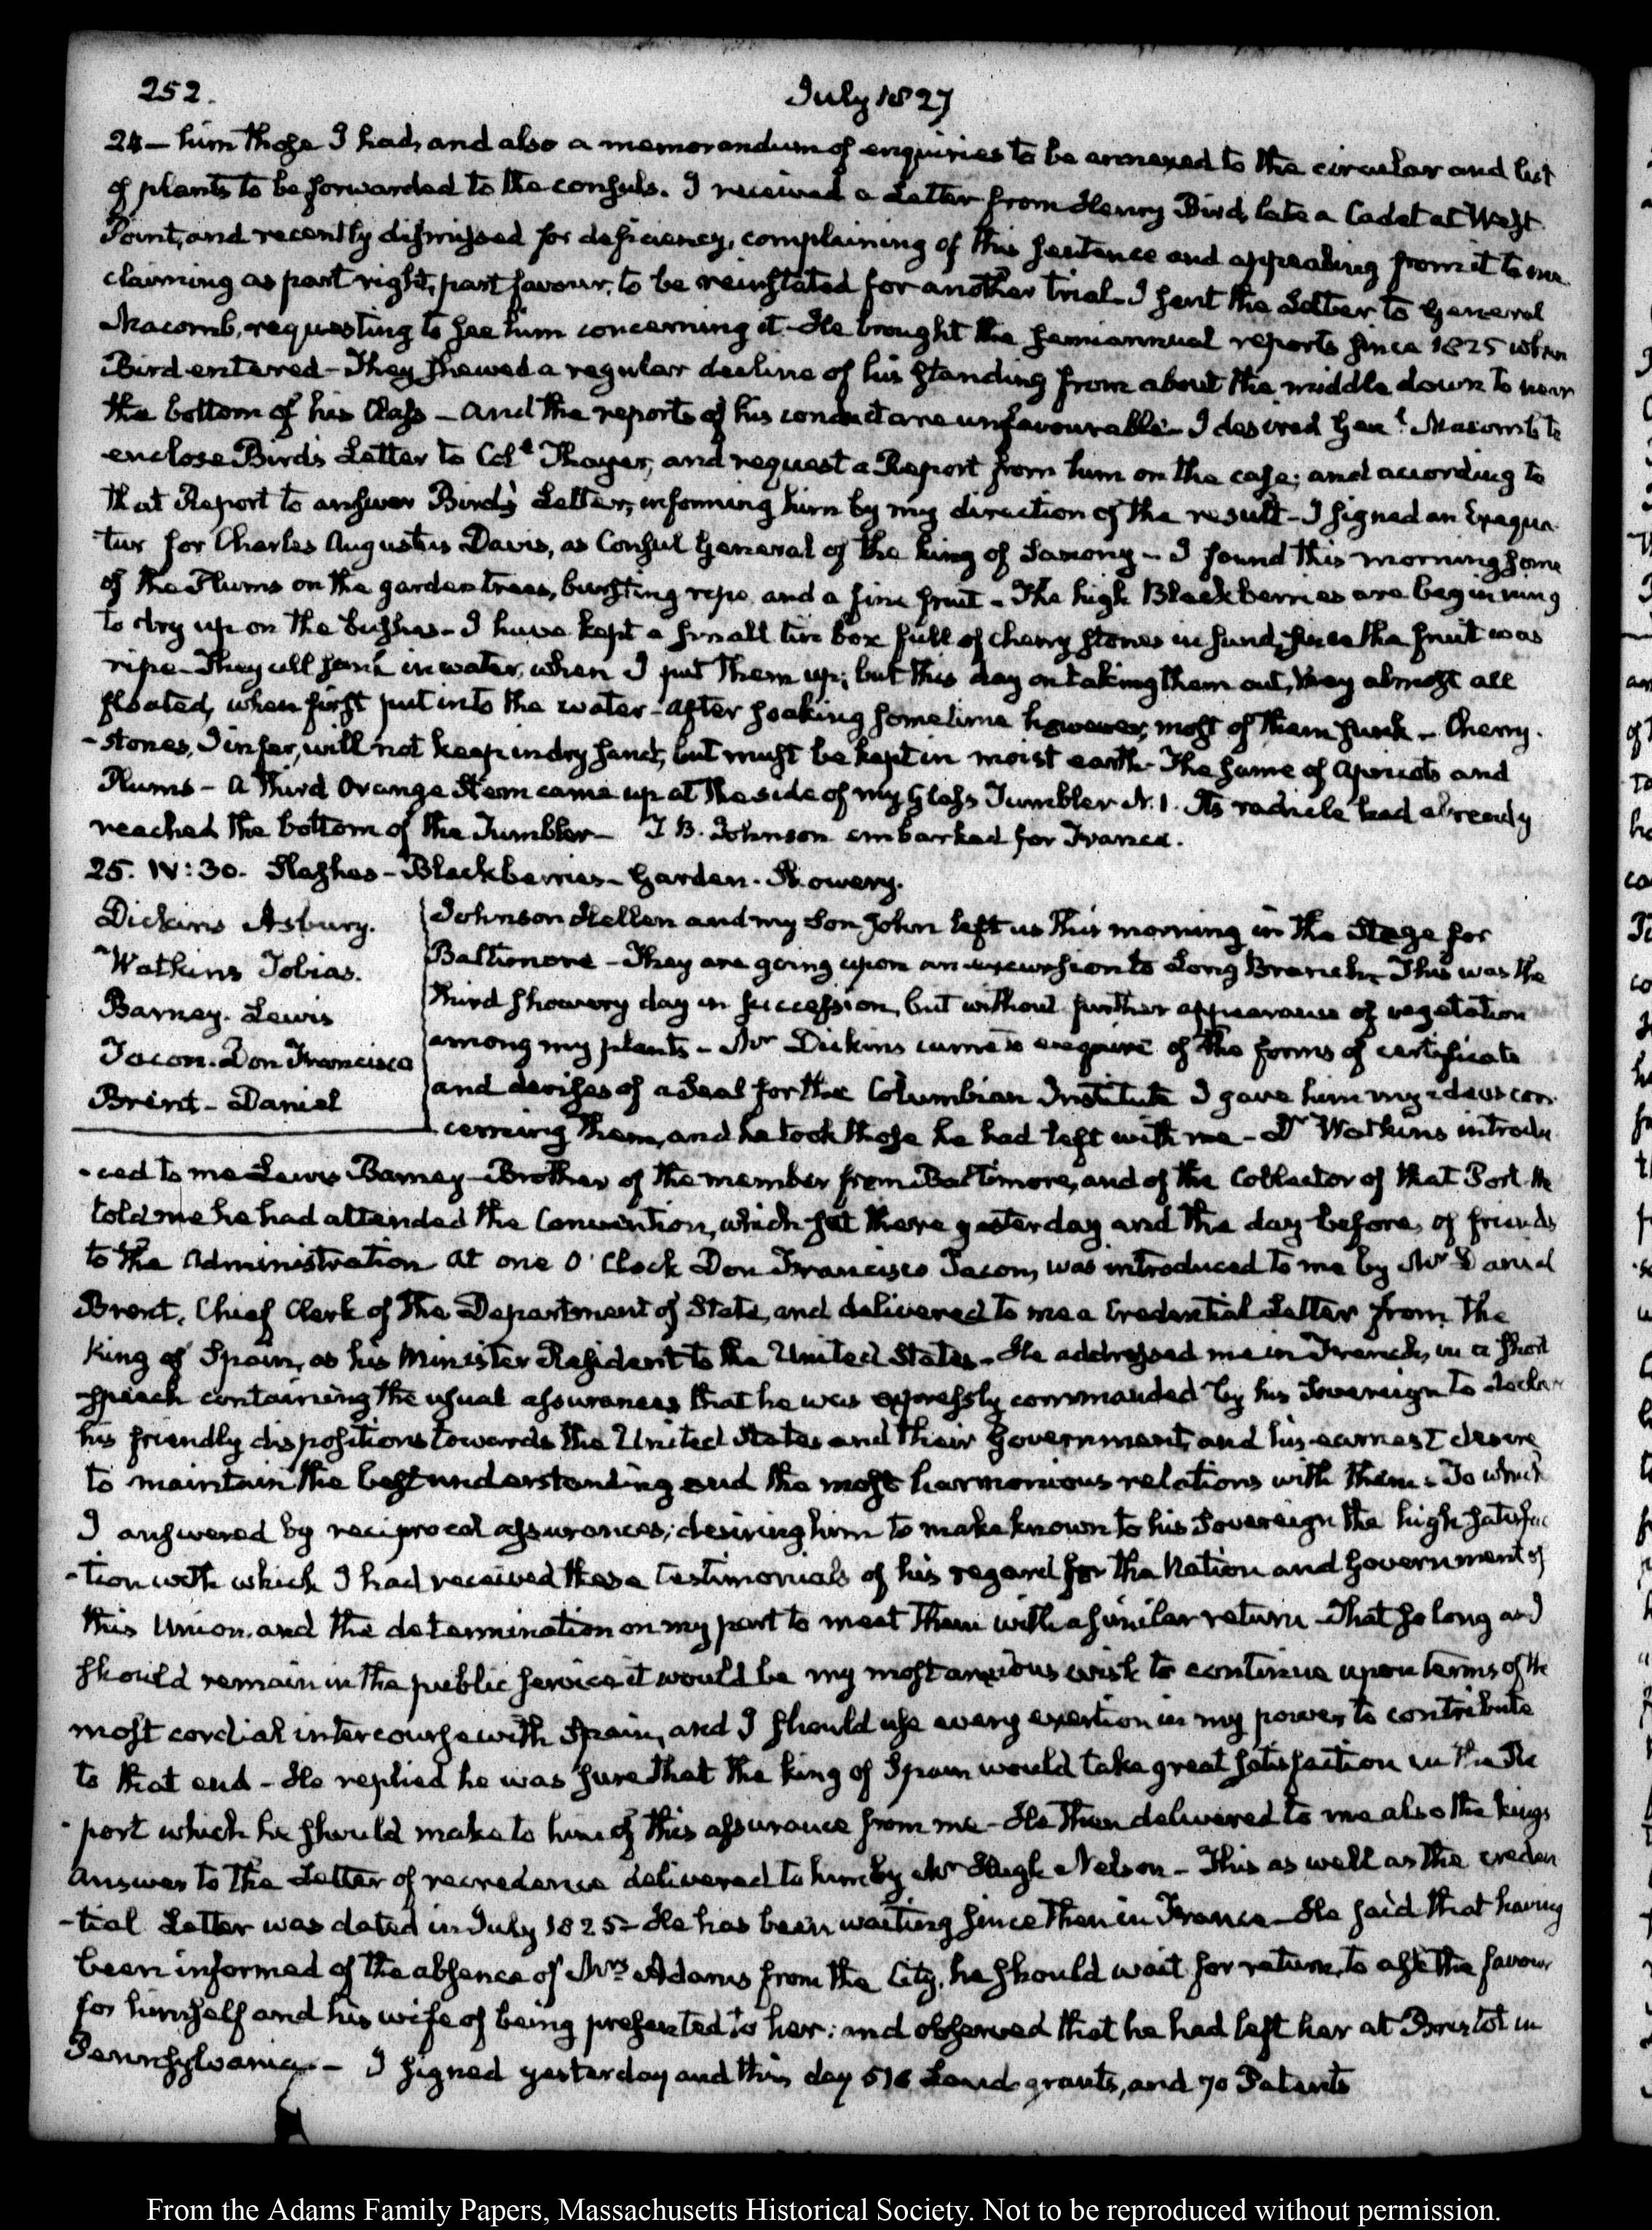 252.
July 1827
24 — him those I had, and also a memorandum of enquiries to be annexed to the circular and list
of plants to be forwarded to the consuls. I received a Letter from Henry Bird, late a Cadet at West
Point, and recently dismissed for deficiency, complaining of this sentence and appealing from it to me
claiming as part right, part favour, to be reinstated for another trial. I sent the Letter to General
Macomb, requesting to see him concerning it. He brought the semiannual reports since 1825 when
Bird entered — They shewed a regular decline of his standing from about the middle down to near
the bottom of his Class — and the reports of his conduct are unfavourable — I desired Genl. Macomb to
enclose Bird's Letter to Coll. Thayer, and request a Report from him on the case; and according to
that Report to answer Bird's Letter, informing him by my direction of the result — I signed an Exequa-
tur for Charles Augustus Davis, as Consul General of the King of Saxony — I found this morning some
of the Plums on the garden trees, bursting ripe, and a fine fruit — The high Blackberries are beginning
to dry up on the bushes — I have kept a small tin box full of cherry stones in sand, since the fruit was
ripe — They all sank in water, when I put them up; but this day on taking them out, they almost all
floated, when first put into the water — after soaking sometime however, most of them sunk — Cherry-
-stones, I infer, will not keep in dry sand, but must be kept in moist earth — The same of Apricots and
Plums — A third Orange Stem came up at the side of my Glass Tumbler N. 1. Its radicle had already
reached the bottom of the Tumbler — T. B. Johnson embarked for France.
25. IV: 30. Slashes — Blackberries — Garden. Showery.
Dickins Asbury.
Watkins Tobias.
Barney. Lewis
Tacon. Don Francisco
Brent — Daniel
Johnson Hellen and my Son John left us this morning in the Stage for
Baltimore — They are going upon an excursion to Long Branch. This was the
third showery day in succession, but without further appearance of vegetation
among my plants — Mr Dickins came to enquire of the forms of certificate
and devises of a Seal for the Columbian Institute I gave him my ideas con-
cerning them, and he took those he had left with me — Dr Watkins introdu-
-ced to me Lewis Barney — Brother of the member from Baltimore, and of the Collector of that Port. He
told me he had attended the Convention, which sat there yesterday and the day before, of friends
to the Administration At one O'Clock Don Francisco Tacon, was introduced to me by Mr Daniel
Brent, Chief Clerk of the Department of State, and delivered to me a Credential Letter from the
King of Spain, as his Minister Resident to the United States — He addressed me in French, in a short
speech containing the usual assurances that he was expressly commanded by his Sovereign to declare
his friendly dispositions towards the United States and their Government, and his earnest desire
to maintain the best understanding and the most harmonious relations with them — To which
I answered by reciprocal assurances; desiring him to make known to his Sovereign the high satisfac-
-tion with which I had received these testimonials of his regard for the Nation and Government of
this Union, and the determination on my part to meet them with a similar return — That so long as I
should remain in the public service it would be my most anxious wish to continue upon terms of the
most cordial intercourse with Spain, and I should use every exertion in my power, to contribute
to that end — He replied he was sure that the King of Spain would take great satisfaction in the Re-
-port which he should make to him of this assurance from me — He then delivered to me also the kings
answer to the Letter of recredence delivered to him by Mr Hugh Nelson — This as well as the creden-
-tial Letter was dated in July 1825 — He has been waiting since then in France — He said that having
been informed of the absence of Mrs Adams from the City, he should wait for return, to ask the favour
for himself and his wife of being presented to her: and observed that he had left her at Bristol in
Pennsylvania — I signed yesterday and this day 516 Land grants, and 70 Patents
From the Adams Family Papers, Massachusetts Historical Society. Not to be reproduced without permission.